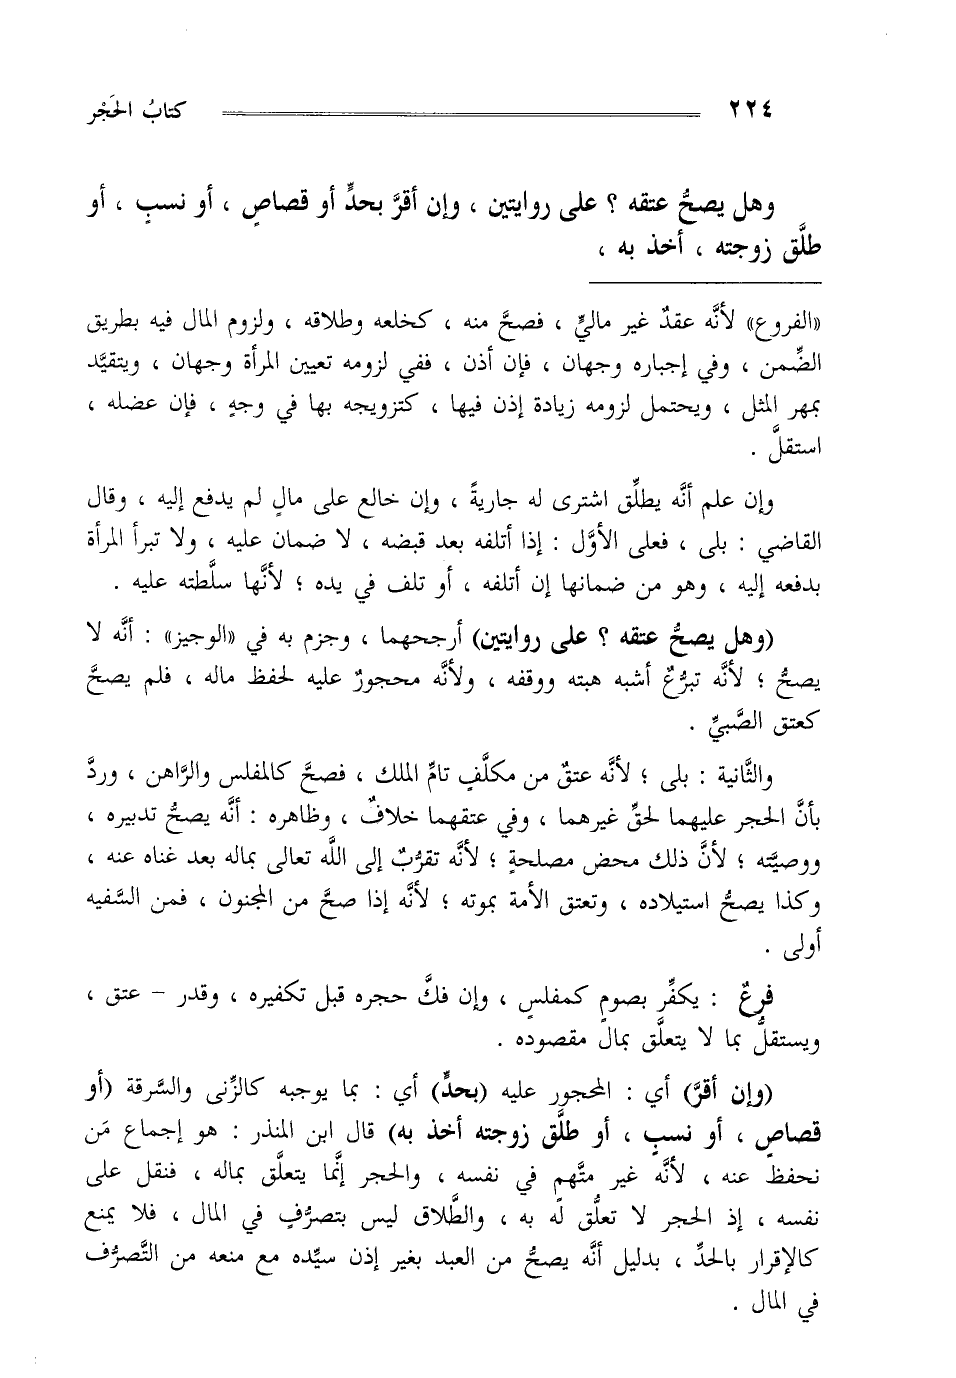 ٢٢٤ كتابُ الحَجْر
وهل يصحُّ عتقه ؟ على روايتين ، وإن أقرَّ بحدٍّ أو قصاصٍ ، أو نسبٍ ، أو
طلَّق زوجته ، أخذ به ،
«الفروع» لأنَّه عقدٌ غير ماليٍّ ، فصحَّ منه ، كخلعه وطلاقه ، ولزوم المال فيه بطريق
الضِّمن ، وفي إجباره وجهان ، فإن أذن ، ففي لزومه تعيين المرأة وجهان ، ويتقيَّد
بمهر المثل ، ويحتمل لزومه زيادة إذن فيها ، كتزويجه بها في وجهٍ ، فإن عضله ،
استقلَّ .
وإن علم أنَّه يطلِّق اشترى له جاريةً ، وإن خالع على مالٍ لم يدفع إليه ، وقال
القاضي : بلى ، فعلى الأوَّل : إذا أتلفه بعد قبضه ، لا ضمان عليه ، ولا تبرأ المرأة
بدفعه إليه ، وهو من ضمانها إن أتلفه ، أو تلف في يده ؛ لأنَّها سلَّطته عليه .
(وهل يصحُّ عتقه ؟ على روايتين) أرجحهما ، وجزم به في «الوجيز» : أنَّه لا
يصحُّ ؛ لأنَّه تبرُّعٌ أشبه هبته ووقفه ، ولأنَّه محجورٌ عليه لحفظ ماله ، فلم يصحَّ
كعتق الصَّبيِّ .
والثَّانية : بلى ؛ لأنَّه عتقٌ من مكلَّفٍ تامِّ الملك ، فصحَّ كالمفلس والرَّاهن ، وردَّ
بأنَّ الحجر عليهما لحقِّ غيرهما ، وفي عتقهما خلافٌ ، وظاهره : أنَّه يصحُّ تدبيره ،
ووصيَّته ؛ لأنَّ ذلك محض مصلحةٍ ؛ لأنَّه تقرُّبٌ إلى اللَّه تعالى بماله بعد غناه عنه ،
وكذا يصحُّ استيلاده ، وتعتق الأمة بموته ؛ لأنَّه إذا صحَّ من المجنون ، فمن السَّفيه
أولى .
فرعٌ : يكفِّر بصومٍ كمفلسٍ ، وإن فكَّ حجره قبل تكفيره ، وقدر – عتق ،
ويستقلُّ بما لا يتعلَّق بمال مقصوده .
(وإن أقرَّ) أي : المحجور عليه (بحدٍّ) أي : بما يوجبه كالزِّنى والسَّرقة (أو
قصاصٍ ، أو نسبٍ ، أو طلَّق زوجته أخذ به) قال ابن المنذر : هو إجماع مَن
نحفظ عنه ، لأنَّه غير متَّهمٍ في نفسه ، والحجر إنَّما يتعلَّق بماله ، فنقل على
نفسه ، إذ الحجر لا تعلُّق له به ، والطَّلاق ليس بتصرُّفٍ في المال ، فلا يمنع
كالإقرار بالحدِّ ، بدليل أنَّه يصحُّ من العبد بغير إذن سيِّده مع منعه من التَّصرُّف
في المال .